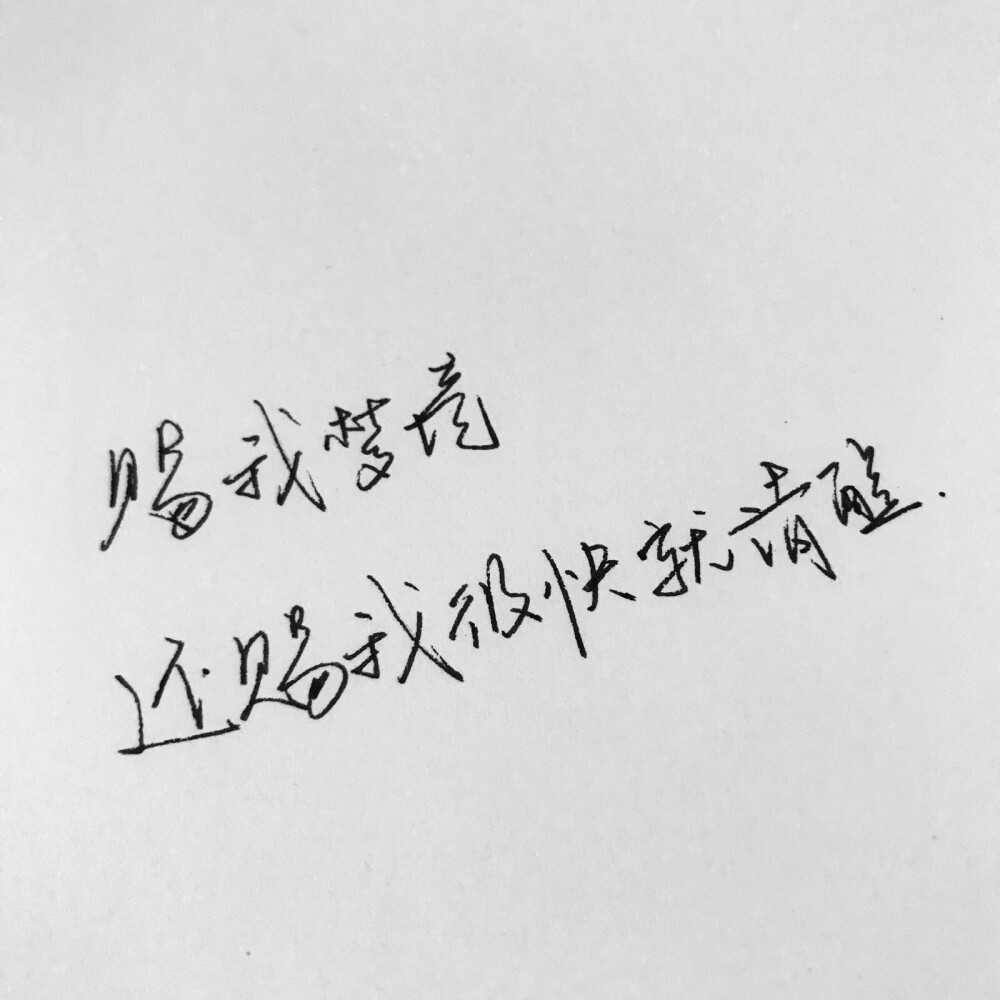 赐我梦境
还赐我很快就清醒.